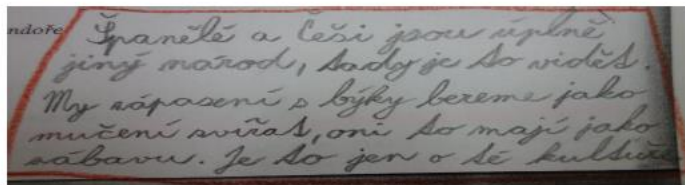 ndoře
Španělé a Češi jsou úplně
jiný národ, tady je to vidět.
My zápasení s býky bereme jako
mučení zvířat, oni to mají jako
zábavu. Je to jen o té kultuře